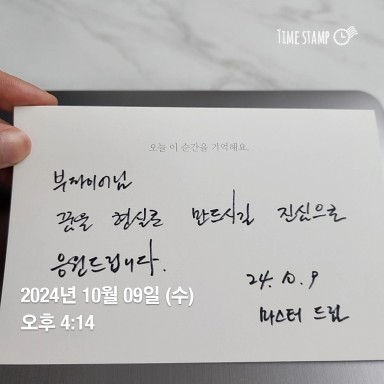 TIME STAMP
오늘 이 순간을 기억해요.
부자이어님
꿈을 현실로 만드시길 진심으로
응원드립니다.
24. 10. 9
마스터 드림
2024년 10월 09일 (수)
오후 4:14